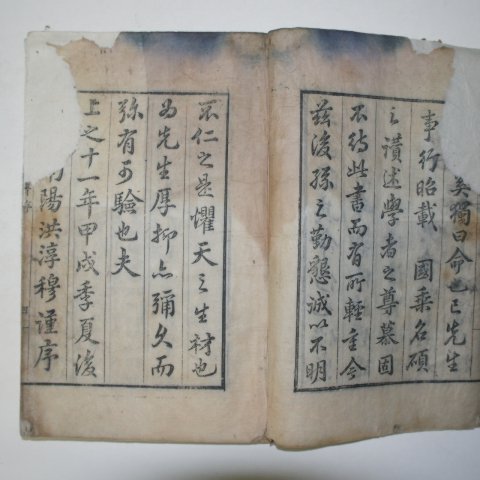 矣獨曰命也已先生
事行昭載 國乘名碩
之讚述學者之尊慕固
不待此書而有所輕重今
玆後孫之勤懇誠以不明
不仁之是懼天之生材也
為先生厚抑亦彌久而
弥有可驗也夫
上之十一年甲戌季夏後
陽洪淳穆謹序